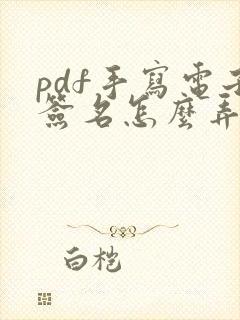 pdf手寫電子
簽名怎麼弄
白桤